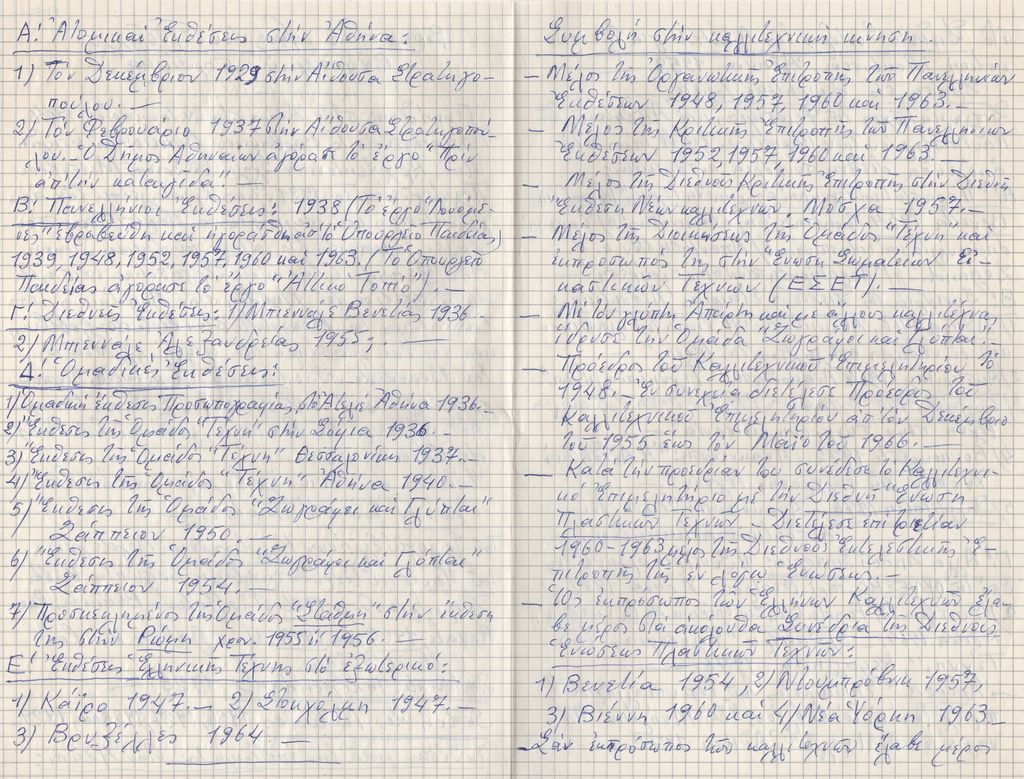 Α! Ἀτομικαί Ἐκθέσεις στήν Ἀθήνα:
1) Τόν Δεκέμβριον 1929 στήν Αἴθουσα Στρατηγο-
πούλου. —
2) Τόν Φεβρουάριο 1937 στήν Αἴθουσα Στρατηγοπού-
λου. – Ὁ Δῆμος Ἀθηναίων ἀγόρασε τό ἔργο "Πρίν
ἀπ'τήν καταιγίδα". —
Β! Πανελλήνιοι Ἐκθέσεις: 1938 (Τό ἔργο "Λουόμε-
νες" ἐβραβεύθη καί ἠγοράσθη ἀπ'τό Ὑπουργεῖο Παιδείας)
1939, 1948, 1952, 1957, 1960 καί 1963. (Τό Ὑπουργεῖο
Παιδείας ἀγόρασε τό ἔργο "Ἀττικό Τοπίο"). —
Γ! Διεθνεῖς Ἐκθέσεις: 1) Μπιεννάλε Βενετίας 1936
2) Μπιεννάλε Ἀλεξανδρείας 1955. —
Δ! Ὁμαδικές Ἐκθέσεις:
1) Ὁμαδική ἔκθεσις Προσωπογραφίας, στό Ἀτελιέ Ἀθήνα 1936. –
2) Ἔκθεσις τῆς Ὁμάδος "Τέχνη" στήν Σόφια 1936. –
3) Ἔκθεσις τῆς Ὁμάδος "Τέχνη" Θεσσαλονίκη 1937. –
4) Ἔκθεσις τῆς Ὁμάδος "Τέχνη" Ἀθήνα 1940. –
5) Ἔκθεσις τῆς Ὁμάδος "Ζωγράφοι καί Γλύπται"
Ζάππειον 1950. –
6) Ἔκθεσις τῆς Ὁμάδος "Ζωγράφοι καί Γλύπται"
Ζάππειον 1954. –
7) Προσκεκλημένος τῆς Ὁμάδος "Στάθμη" στήν ἔκθεση
της στήν Ρώμη χρον. 1955 ἤ 1956. —
Ε! Ἐκθέσεις Ἑλληνικῆς Τέχνης στό ἐξωτερικό:
1) Κάϊρο 1947. – 2) Στοκχόλμη 1947. –
3) Βρυξέλλες 1964. —
Συμβολή στήν καλλιτεχνική κίνηση.
– Μέλος τῆς Ὀργανωτικῆς Ἐπιτροπῆς τῶν Πανελληνίων
Ἐκθέσεων 1948, 1957, 1960 καί 1963. –
– Μέλος τῆς Κριτικῆς Ἐπιτροπῆς τῶν Πανελληνίων
Ἐκθέσεων 1952, 1957, 1960 καί 1963. —
– Μέλος τῆς Διεθνοῦς Κριτικῆς Ἐπιτροπῆς στήν Διεθνῆ
Ἔκθεση Νέων καλλιτεχνῶν. Μόσχα 1957. –
– Μέλος τῆς Διοικήσεως τῆς Ὁμάδος "Τέχνη" καί
ἐκπρόσωπός της στήν Ἕνωση Σωματείων Εἰ-
καστικῶν Τεχνῶν (ΕΣΕΤ). —
– Μέ τόν γλύπτη Ἀπάρτη καί μέ ἄλλους καλλιτέχνας
ἵδρυσε τήν Ὁμάδα "Ζωγράφοι καί Γλύπται". –
– Πρόεδρος τοῦ Καλλιτεχνικοῦ Ἐπιμελητηρίου τό
1948. – Ἐν συνεχεία διετέλεσε Πρόεδρος τοῦ
Καλλιτεχνικοῦ Ἐπιμελητηρίου ἀπ'τόν Δεκέμβριο
τοῦ 1955 ἕως τόν Μάϊο τοῦ 1966. —
– Κατά τήν προεδρίαν του συνέδεσε τό Καλλιτεχνι-
κό Ἐπιμελητήριο μέ τήν Διεθνῆ Ἕνωση
Πλαστικῶν Τεχνῶν – Διετέλεσε ἐπί τριετίαν
1960-1963 μέλος τῆς Διεθνοῦς Ἐκτελεστικῆς Ἐ-
πιτροπῆς τῆς ἐν λόγω Ἑνώσεως. –
– Ὡς ἐκπρόσωπος τῶν Ἑλλήνων Καλλιτεχνῶν ἔλα-
βε μέρος στά ἀκόλουθα Συνέδρια τῆς Διεθνοῦς
Ἑνώσεως Πλαστικῶν Τεχνῶν:
1) Βενετία 1954, 2) Ντουμπρόβνικ 1957,
3) Βιέννη 1960 καί 4) Νέα Ὑόρκη 1963 –
Σάν ἐκπρόσωπος τῶν καλλιτεχνῶν ἔλαβε μέρος